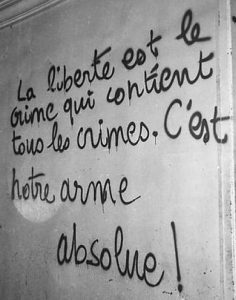 La liberté est le
crime qui contient
tous les crimes. C'est
notre arme
absolue !